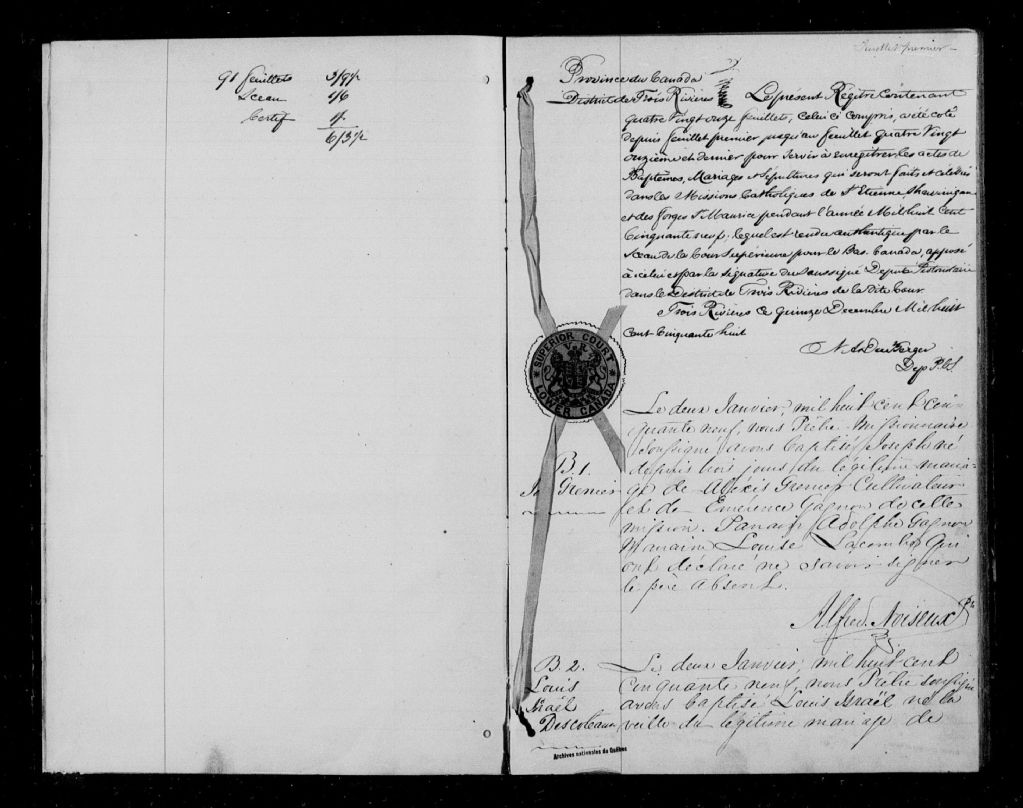 91 feuillets 3/9½
Sceau 4/6
Certif
6/3½
Feuillet premier
Province du Canada
District de Trois Rivières
Le présent Régitre Contenant
quatre Vingt onze feuillets, celui ci compris, a été coté
depuis feuillet premier jusqu'au feuillet quatre Vingt
onzième et dernier pour servir à enrégitrer les actes de
Baptêmes, Mariages et Sépultures qui seront faits et célébrés
dans les Missions Catholiques de St Etienne, Shawinigan
et des Forges St Maurice pendant l'année Mil huit Cent
Cinquante neuf; lequel est rendu authentique par le
Sceau de la Cour Supérieure pour le Bas-Canada, apposé
à icelui et par la signature du Soussigné Député Protonotaire
dans le District de Trois Rivières de la dite Cour
Trois Rivières ce quinze Decembre Mil huit
Cent Cinquante huit
Dep P.C.S.
SUPERIOR COURT
V R
LOWER CANADA
B. 1.
Js Grenier
Le deux Janvier, mil huit cent cin-
quante neuf, nous Prêtre Missionnaire
soussigné avons baptisé Joseph né
depuis trois jours du légitime maria-
ge de Alexis Grenier Cultivateur
et de Emérence Gagnon de cette
mission. Parrain Adolphe Gagnon
Marraine Louise Lacombe qui
ont déclaré ne savoir signer
le père absent.
Alfred Noiseux Ptre
B 2.
Louis
Israël
Descoteaux
Le deux Janvier, mil huit cent
cinquante neuf, nous Prêtre soussigné
avons baptisé Louis Israël né la
veille du légitime mariage de
Archives nationales du Québec